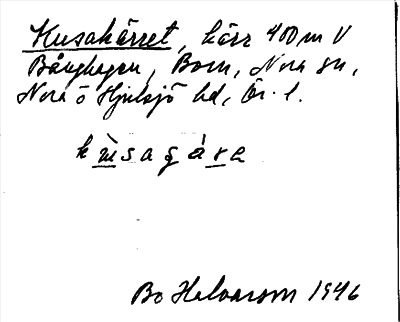 Kusakärret, kärr 400 m V
Bånghagen, Born, Nora sn,
Nora o Hjulsjö hd, Ör. l.
kùsagára
Bo Halvarson 1946